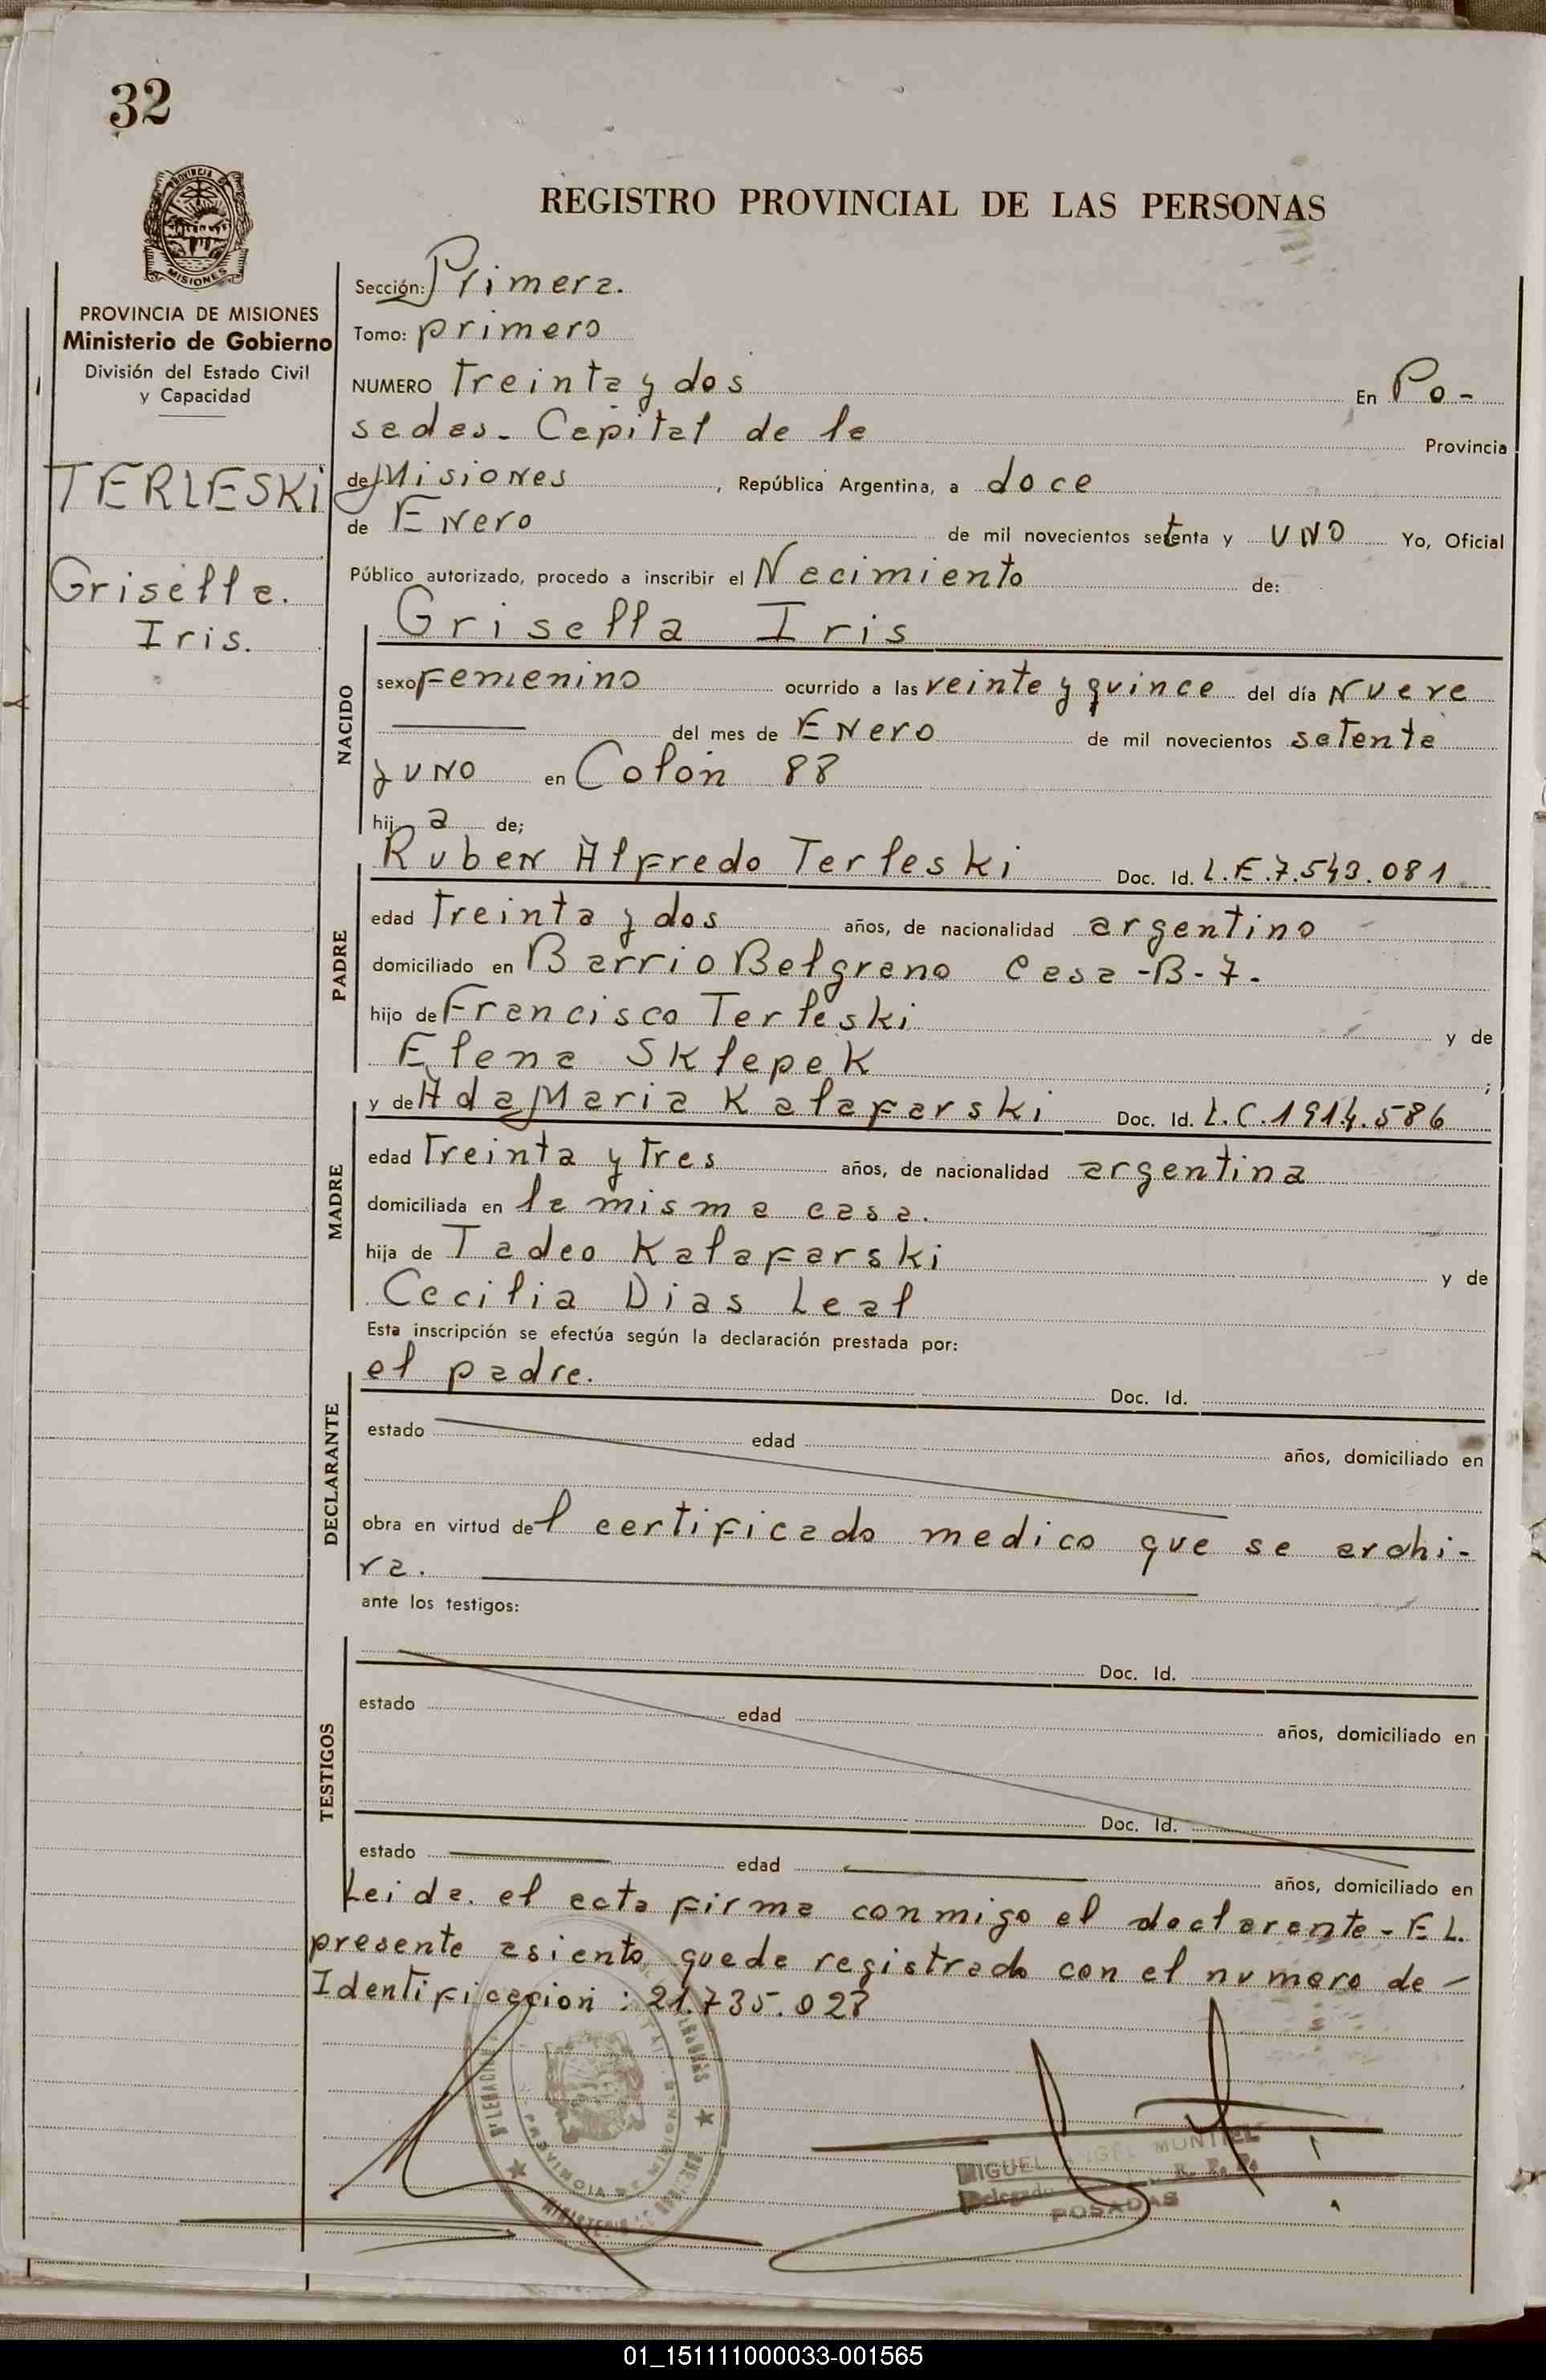 32
PROVINCIA DE
MISIONES
REGISTRO PROVINCIAL DE LAS PERSONAS
PROVINCIA DE MISIONES
Ministerio de Gobierno
División del Estado Civil
y Capacidad
TERLESKI
Grisella.
Iris.
Sección: Primera.
Tomo: primero
NUMERO Treinta y dos En Po-
sadas - Capital de la Provincia
de Misiones, República Argentina, a doce
de Enero de mil novecientos setenta y UNO Yo, Oficial
Público autorizado, procedo a inscribir el Nacimiento de:
NACIDO
Grisella Iris
sexo Femenino ocurrido a las veinte y quince del día Nueve
del mes de Enero de mil novecientos setenta
y UNO en Colón 88
hija de;
PADRE
Ruben Alfredo Terleski Doc. Id. L.E.7.543.081
edad Treinta y dos años, de nacionalidad argentino
domiciliado en Barrio Belgrano Casa -B-7.
hijo de Francisco Terleski y de
Elena Sklepek;
MADRE
y de Ada Maria Kalafarski Doc. Id. L.C.1914.586
edad Treinta y Tres años, de nacionalidad argentina
domiciliada en la misma casa.
hija de Tadeo Kalafarski y de
Cecilia Dias Leal
Esta inscripción se efectúa según la declaración prestada por:
DECLARANTE
el padre. Doc. Id.
estado edad años, domiciliado en
obra en virtud del certificado medico que se archi-
va.
ante los testigos:
TESTIGOS
Doc. Id.
estado edad años, domiciliado en
Doc. Id.
estado edad años, domiciliado en
Leida. el acta firma conmigo el declarante - EL.
presente asiento, quede registrado con el numero de -
Identificacion : 21.735.028
MIGUEL ANGEL MONTIEL
Delegado R. P. P.
POSADAS
01_151111000033-001565